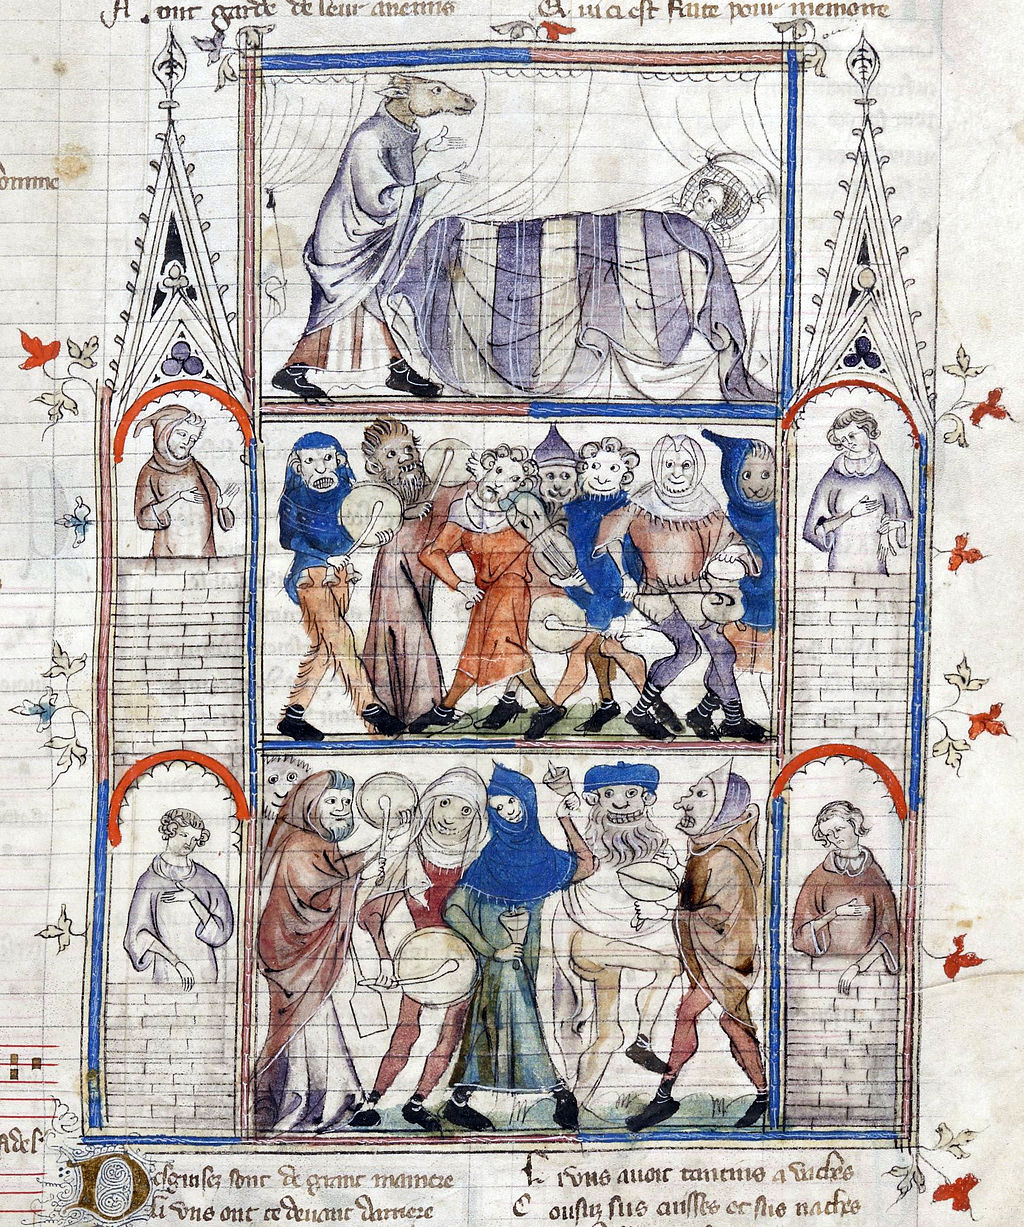 ont garde de leur anemis
Qui ci est faite pour memoire
omme
ades
Desguisez sont de grant maniere
Li uns ont ce devant darriere
Li uns avoit tantins a vaches
Cousuz sus cuisses et sus naches